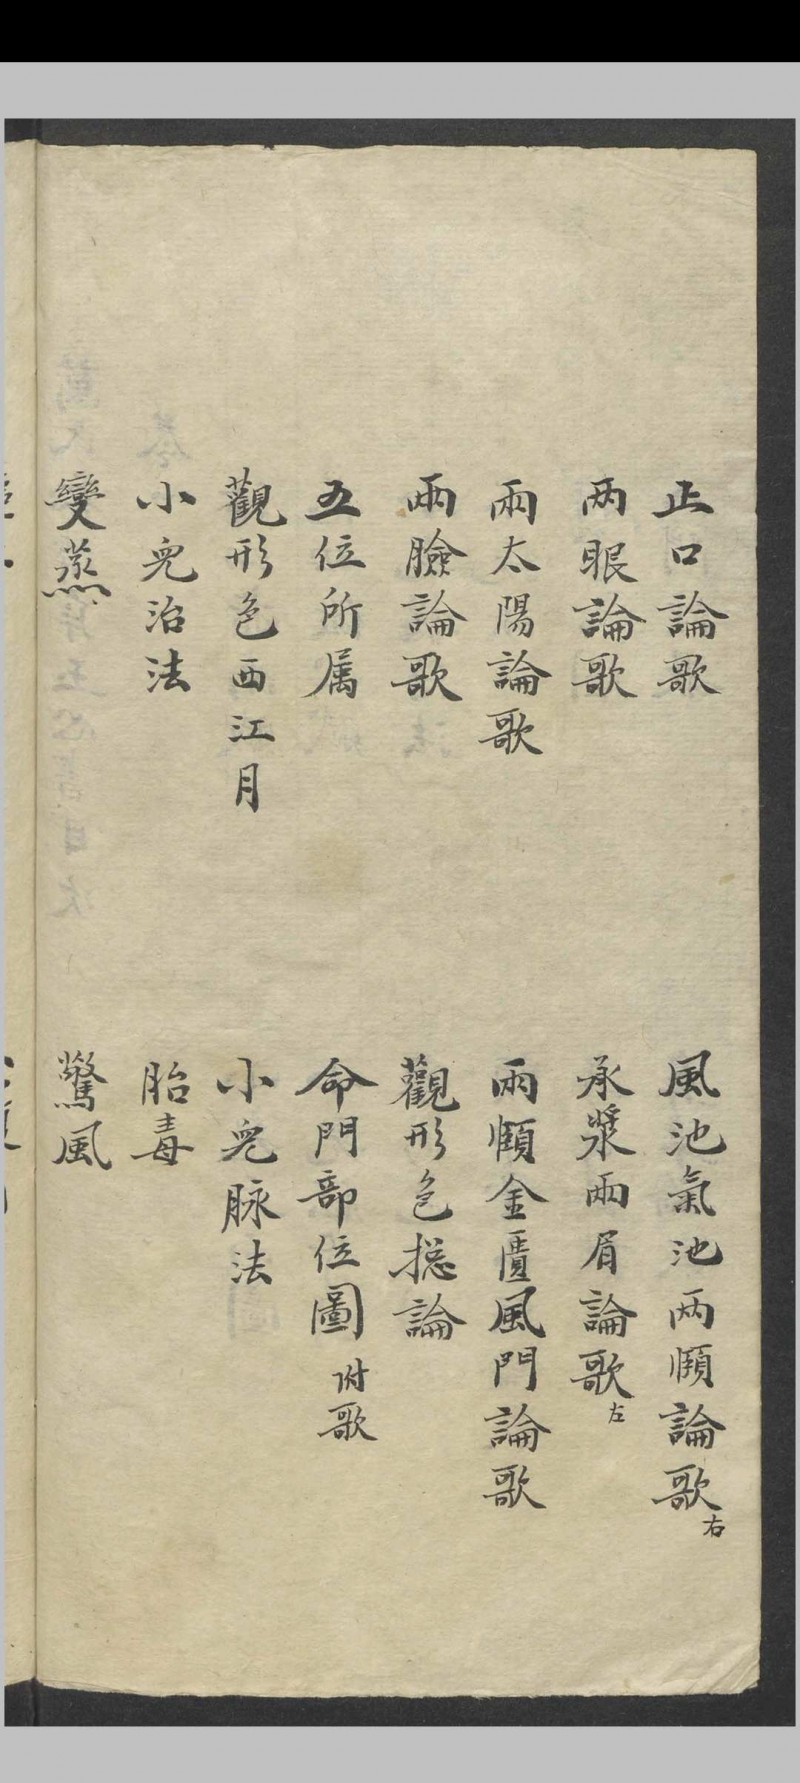 正口論歌
風池氣池两顀論歌右
两眼論歌
承漿兩眉論歌左
兩太陽論歌
兩顀金匱風門論歌
兩臉論歌
觀形色摠論
五位所属
命門部位圖附歌
觀形色西江月
小児脉法
小児治法
胎毒
變蒸
驚風